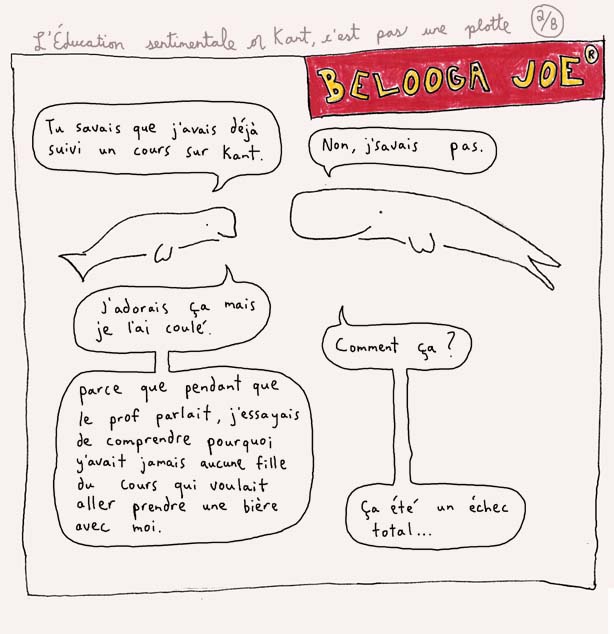 L'Éducation sentimentale or Kant, c'est pas une plotte 2/8
BELOOGA JOE®
Tu savais que j'avais déjà
suivi un cours sur Kant.
Non, j'savais pas.
J'adorais ça mais
je l'ai coulé.
Comment ça?
parce que pendant que
le prof parlait, j'essayais
de comprendre pourquoi
y'avait jamais aucune fille
du cours qui voulait
aller prendre une bière
avec moi.
Ça été un échec
total...